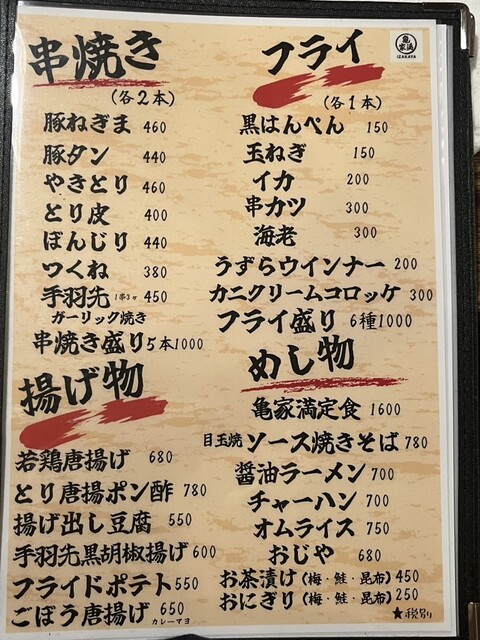 串焼き
(各2本)
豚ねぎま 460
豚タン 440
やきとり 460
とり皮 400
ぼんじり 440
つくね 380
手羽先 1串3ヶ 450
ガーリック焼き
串焼き盛り5本1000
揚げ物
若鶏唐揚げ 680
とり唐揚ポン酢 780
揚げ出し豆腐 550
手羽先黒胡椒揚げ 600
フライドポテト 550
ごぼう唐揚げ 650
カレーマヨ
亀家満
IZAKAYA
フライ
(各1本)
黒はんぺん 150
玉ねぎ 150
イカ 200
串カツ 300
海老 300
うずらウインナー 200
カニクリームコロッケ 300
フライ盛り 6種1000
めし物
亀家満定食 1600
目玉焼 ソース焼きそば 780
醤油ラーメン 700
チャーハン 700
オムライス 750
おじや 680
お茶漬け(梅・鮭・昆布)450
おにぎり(梅・鮭・昆布)250
★税別